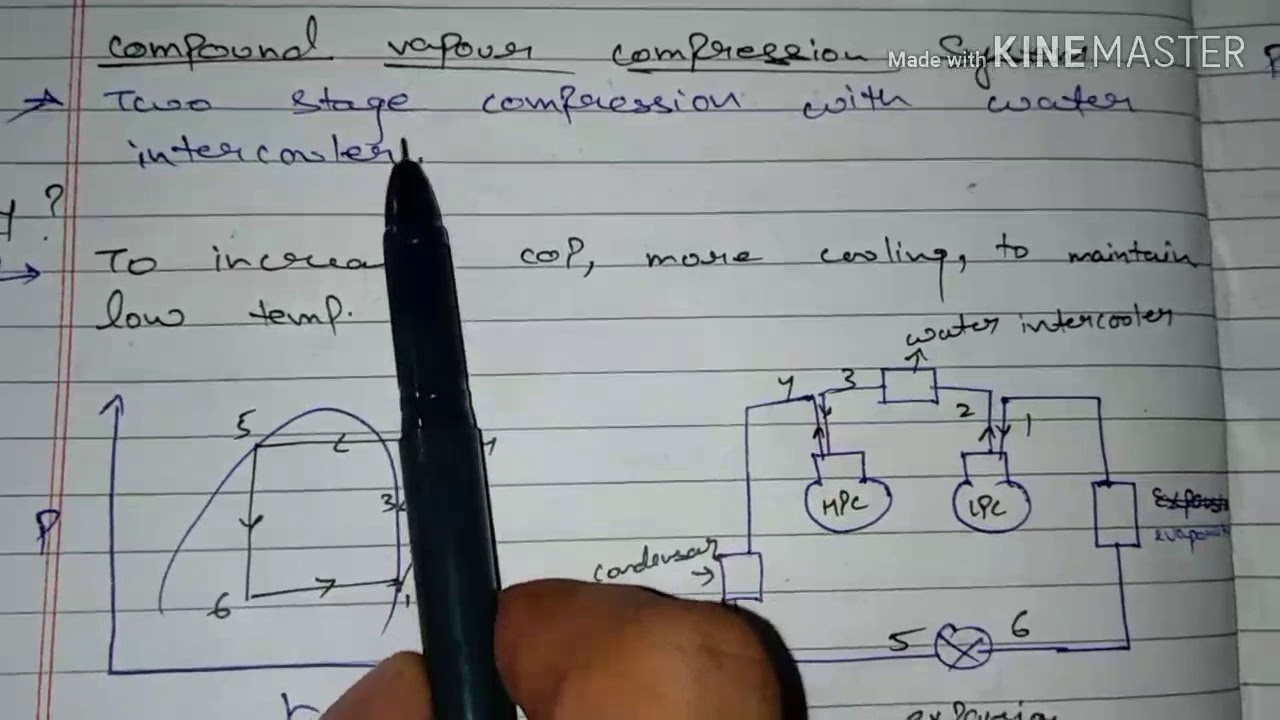 compound vapour compression System
Made with KINEMASTER
Two stage compression with water
intercooler.
?
To increa COP, more cooling, to maintain
low temp.
water intercooler
4 3
2 1
5 4
3
P
HPC LPC
evapora
condensar
6 1
5 6
h
expansion